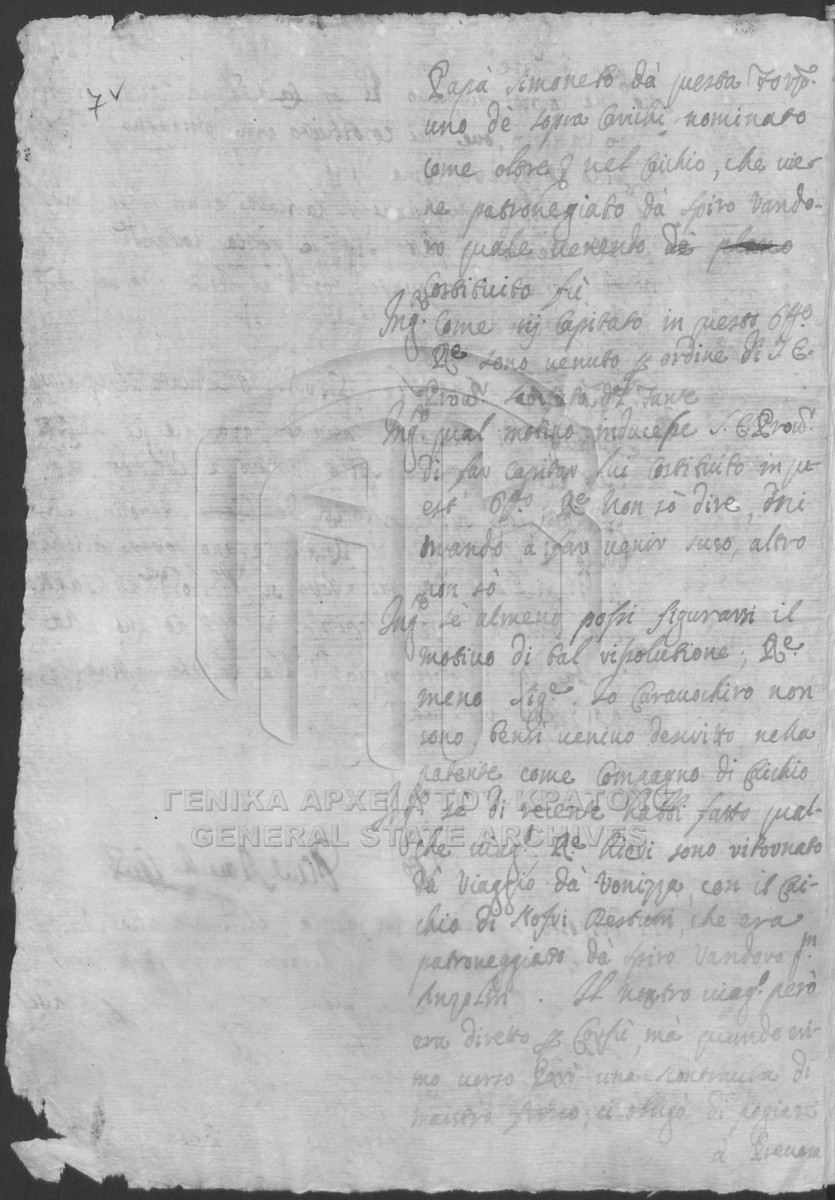 7v
Papà Simoneto dà questa Fortz.
uno dè sopra Caichi nominato
come oltre nel Caichio, che vie-
ne patronegiato dà Spiro Vando-
ro quale venendo dè plano
Costituito fù
Ing.º Come sij Capitato in questo Off.º
R.e sono venuto p ordine di S. E.
Prov.r
Ing.º qual motivo inducesse S. E. Prov.r
di far capitar lui Costituito in qu-
est' Off.º R.e Non sò dire,
mandò à far venir suso, altro
non sò
Ing.º sè almeno possi figurarsi il
motivo di tal rissolutione; R.e
meno Sig.e Io Caravochiro non
sono, bensì venivo descritto nella
patente come Compagno di Caichio
Ing.º sè di recente habbi fatto qual-
che viag.º R.e Hieri sono ritornato
dà Viaggio dà Vonizza, con il Cai-
chio di che era
patroneggiato dà Spiro Vandoro
Anzolin. Il nostro viag.º però
era diretto p Corfù, mà quando eri-
mo verso Paxò una scontratura di
maistro fresco, ci obligò di pogiare
à Prevesa
ΓΕΝΙΚΑ ΑΡΧΕΙΑ ΤΟΥ ΚΡΑΤΟΥΣ
GENERAL STATE ARCHIVES